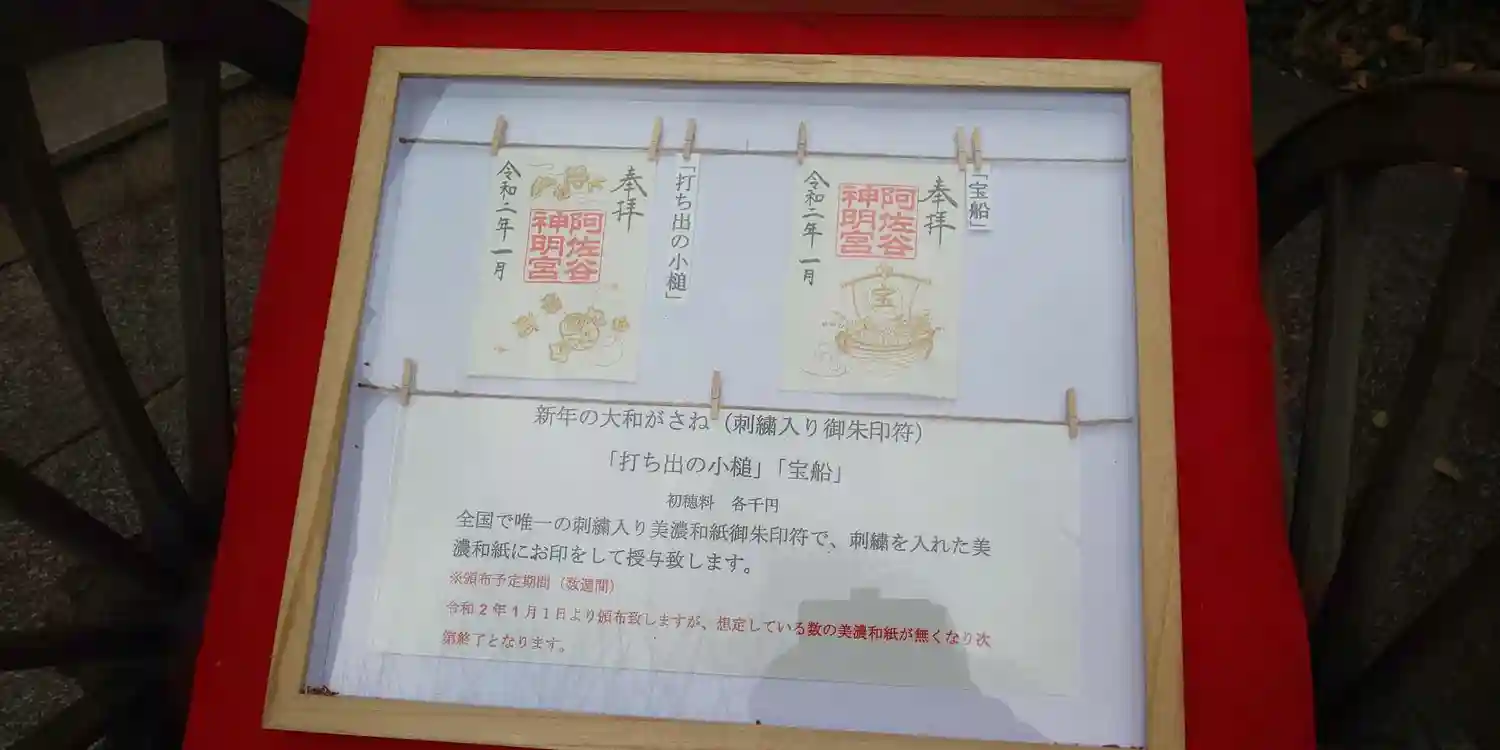 奉拝
阿佐谷
神明宮
令和二年一月
「打ち出の小槌」
奉拝
阿佐谷
神明宮
宝
令和二年一月
「宝船」
新年の大和がさね（刺繍入り御朱印符）
「打ち出の小槌」「宝船」
初穂料　各千円
全国で唯一の刺繍入り美濃和紙御朱印符で、刺繍を入れた美
濃和紙にお印をして授与致します。
※頒布予定期間（数週間）
令和２年１月１日より頒布致しますが、想定している数の美濃和紙が無くなり次
第終了となります。